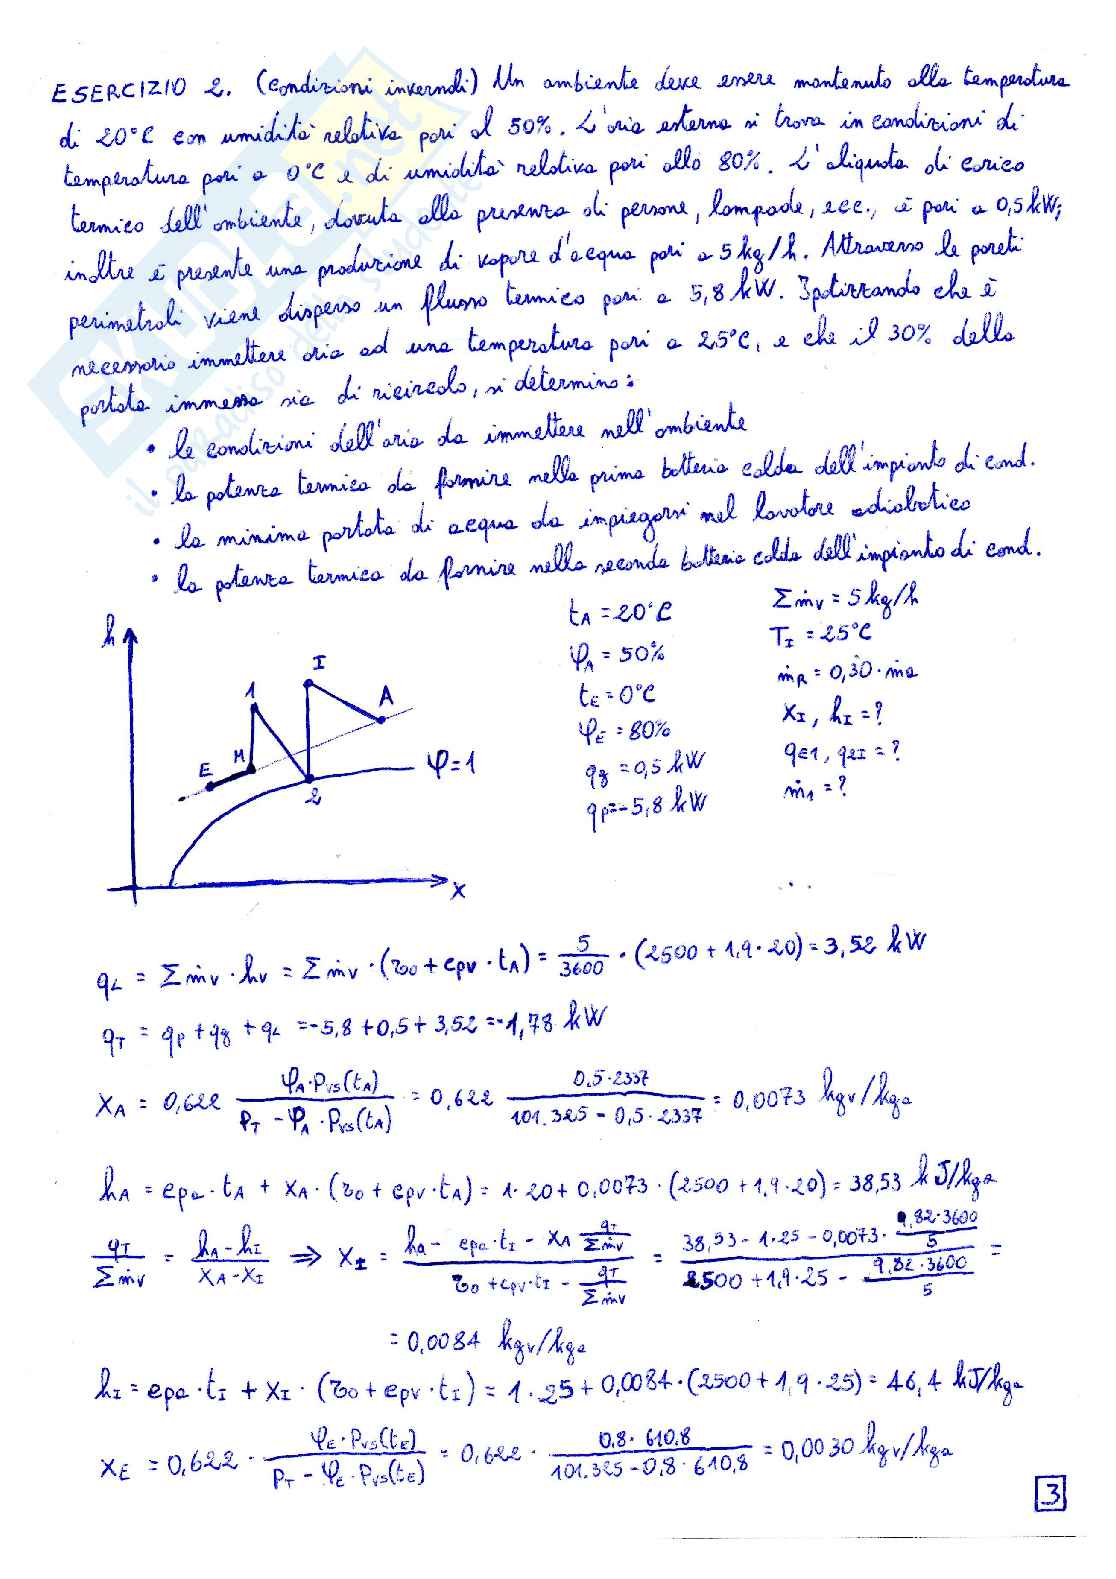 ESERCIZIO 2. (condizioni invernali) Un ambiente deve essere mantenuto alla temperatura
di 20°C con umidità relativa pari al 50%. L'aria esterna si trova in condizioni di
temperatura pari a 0°C e di umidità relativa pari allo 80%. L'aliquota di carico
termico dell'ambiente, dovuta alla presenza di persone, lampade, ecc., è pari a 0,5 kW;
inoltre è presente una produzione di vapore d'acqua pari a 5 kg/h. Attraverso le pareti
perimetrali viene disperso un flusso termico pari a 5,8 kW. Ipotizzando che è
necessario immettere aria ad una temperatura pari a 25°C, e che il 30% della
portata immessa sia di ricircolo, si determino:
• le condizioni dell'aria da immettere nell'ambiente
• la potenza termica da fornire nella prima batteria calda dell'impianto di cond.
• la minima portata di acqua da impiegarsi nel lavatore adiabatico
• la potenza termica da fornire nella seconda batteria calda dell'impianto di cond.
h
I
1
A
E
M
2
φ=1
x
tA = 20°C
φA = 50%
tE = 0°C
φE = 80%
qg = 0,5 kW
qp = -5,8 kW
Σṁv = 5 kg/h
TI = 25°C
ṁR = 0,30·ṁa
XI, hI = ?
qE1, q2I = ?
ṁ1 = ?
qL = Σṁv·hv = Σṁv·(r0 + cpv·tA) = 5/3600 · (2500 + 1,9·20) = 3,52 kW
qT = qp + qg + qL = -5,8 + 0,5 + 3,52 = -1,78 kW
XA = 0,622 φA·Pvs(tA)/(PT - φA·Pvs(tA)) = 0,622 0,5·2337/(101.325 - 0,5·2337) = 0,0073 kgv/kga
hA = cpa·tA + XA·(r0 + cpv·tA) = 1·20 + 0,0073·(2500 + 1,9·20) = 38,53 kJ/kga
qT/Σṁv = (hA - hI)/(XA - XI) ⇒ XI = (ha - cpa·tI - XA qT/Σṁv)/(r0 + cpv·tI - qT/Σṁv) = (38,53 - 1·25 - 0,0073·9,82·3600/5)/(2500 + 1,9·25 - 9,82·3600/5) =
= 0,0084 kgv/kga
hI = cpa·tI + XI·(r0 + cpv·tI) = 1·25 + 0,0084·(2500 + 1,9·25) = 46,4 kJ/kga
XE = 0,622 · φE·Pvs(tE)/(PT - φE·Pvs(tE)) = 0,622 · 0,8·610,8/(101.325 - 0,8·610,8) = 0,0030 kgv/kga
3